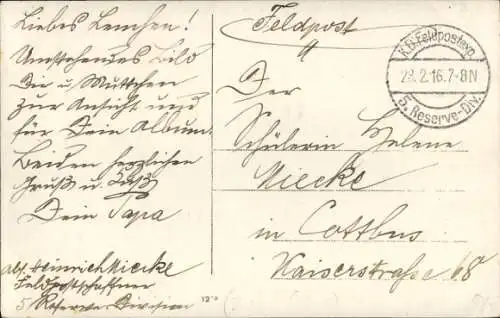 Liebes Lenchen!
Umstehendes Bild
Dir u. Muttchen
zur Ansicht und
für Dein Album.
Beiden herzlichen
Gruß u. Kuß
Dein Papa
Abs. Heinrich Miecke
Feldpostschaffner
5. Reserve-Division
Feldpost
K.D. Feldpostexp.
23.2.16.7-8N
5. Reserve-Div.
Der
Schülerin Helene
Miecke
in Cottbus
Kaiserstraße 68